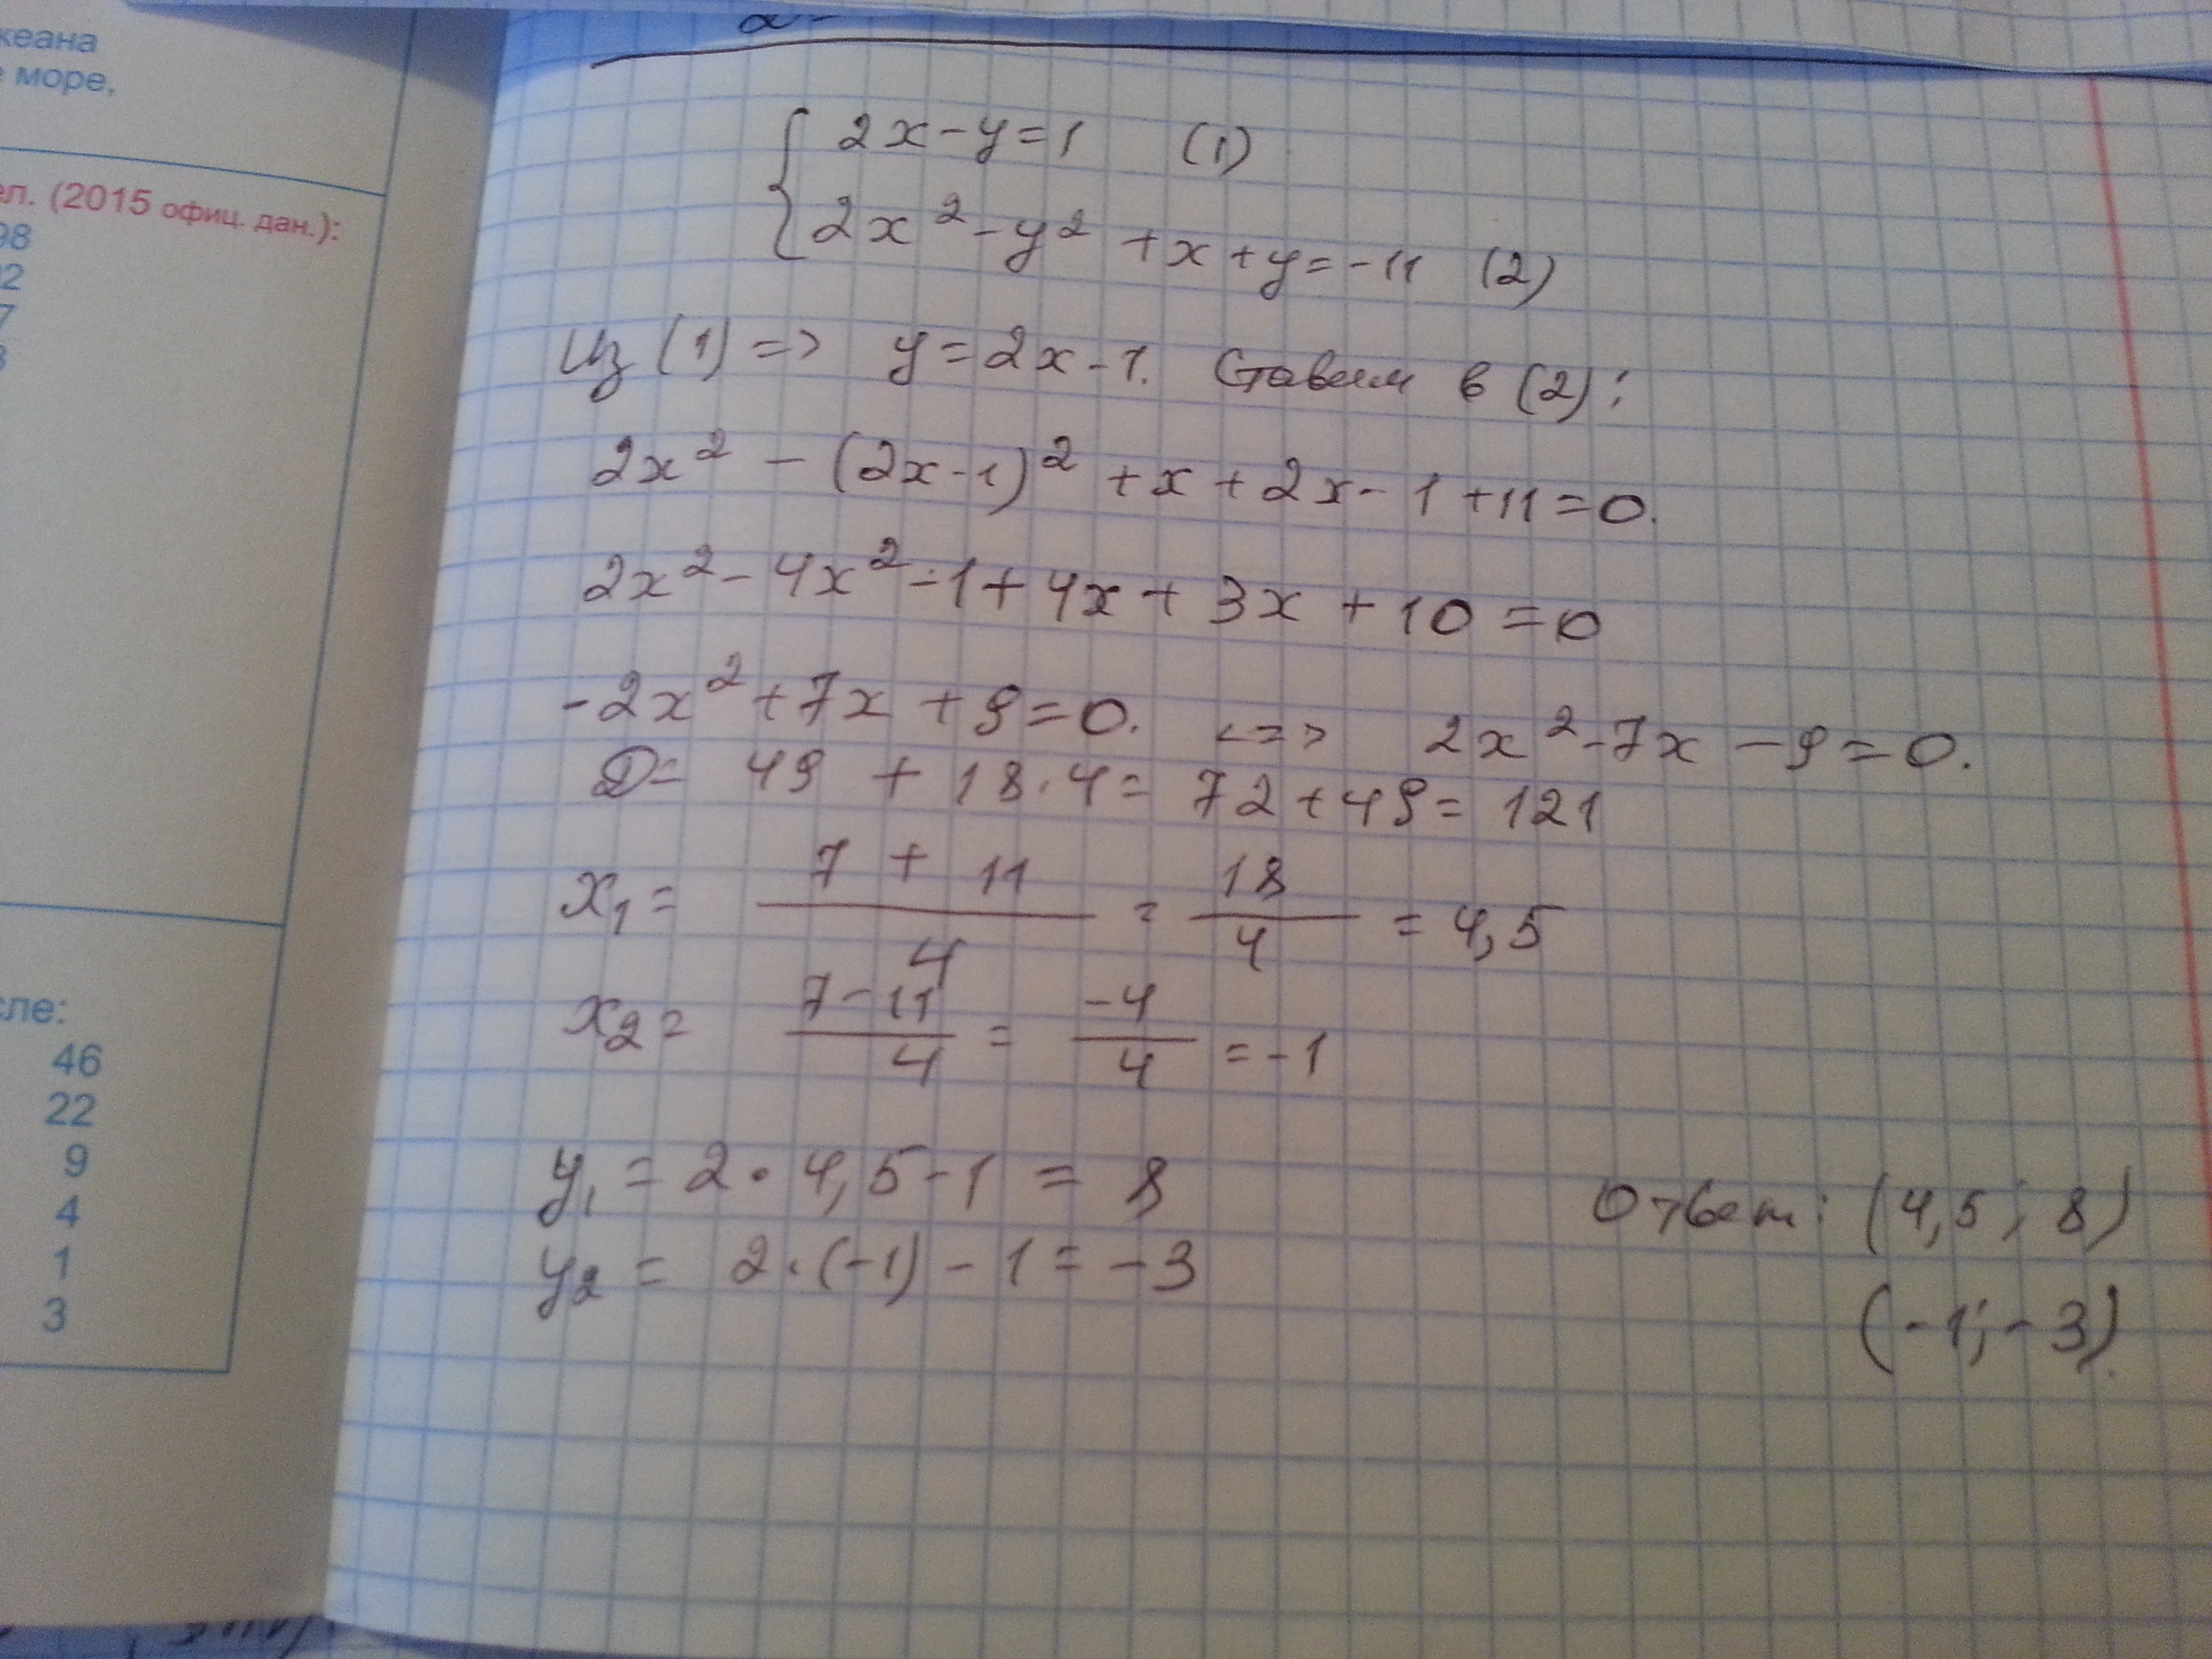 кеана
е море,
ел. (2015 офиц. дан.):
98
2
7
сле:
46
22
9
4
1
3
2x - y = 1 (1)
2x² - y² + x + y = -11 (2)
Из (1) => y = 2x - 1. Ставим в (2):
2x² - (2x - 1)² + x + 2x - 1 + 11 = 0.
2x² - 4x² - 1 + 4x + 3x + 10 = 0
-2x² + 7x + 9 = 0. <=> 2x² - 7x - 9 = 0.
D = 49 + 18·4 = 72 + 49 = 121
x₁ = (7 + 11)/4 = 18/4 = 4,5
x₂ = (7 - 11)/4 = -4/4 = -1
y₁ = 2·4,5 - 1 = 8
y₂ = 2·(-1) - 1 = -3
Ответ: (4,5; 8)
(-1; -3).